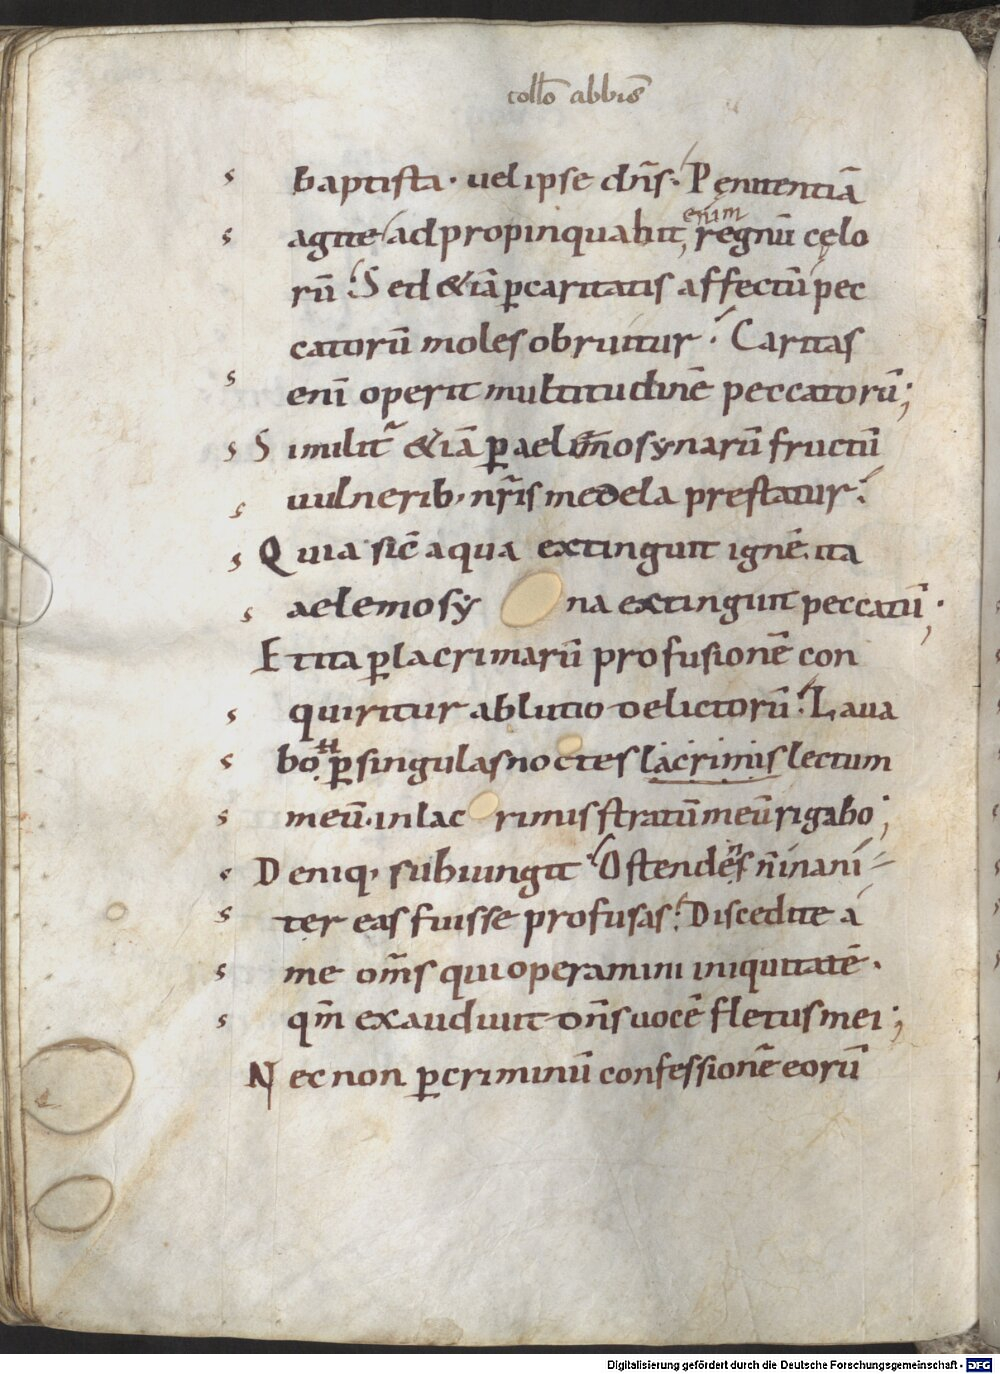 collo abbis
baptista. uel ipse dn̄s. Penitentiā
agite adpropinquabit enim regnū cęlo
rū. Sed &iā ꝑcaritatis affectū pec
catorū moles obruitur. Caritas
enī operit multitudinē peccatorū;
Similit̄ &iā ꝑaelemosynarū fructū
uulnerib, nr̄is medela prestatur.
Quia sic̄ aqua extinguit ignē. ita
aelemosyna extinguit peccatū.
Et ita ꝑlacrimarū profusionē con
quiritur ablutio delictorū. Laua
bo ꝑsingulas noctes lacrimis lectum
meū. in lacrimis stratū meū rigabo;
Deniq, subiungit Ostendens n̄ inani
ter eas fuisse profusas. Discedite a
me om̄s qui operamini iniquitatē.
qm̄ exaudiuit dn̄s uocē fletus mei;
Nec non ꝑcriminū confessionē eorū
Digitalisierung gefördert durch die Deutsche Forschungsgemeinschaft - DFG